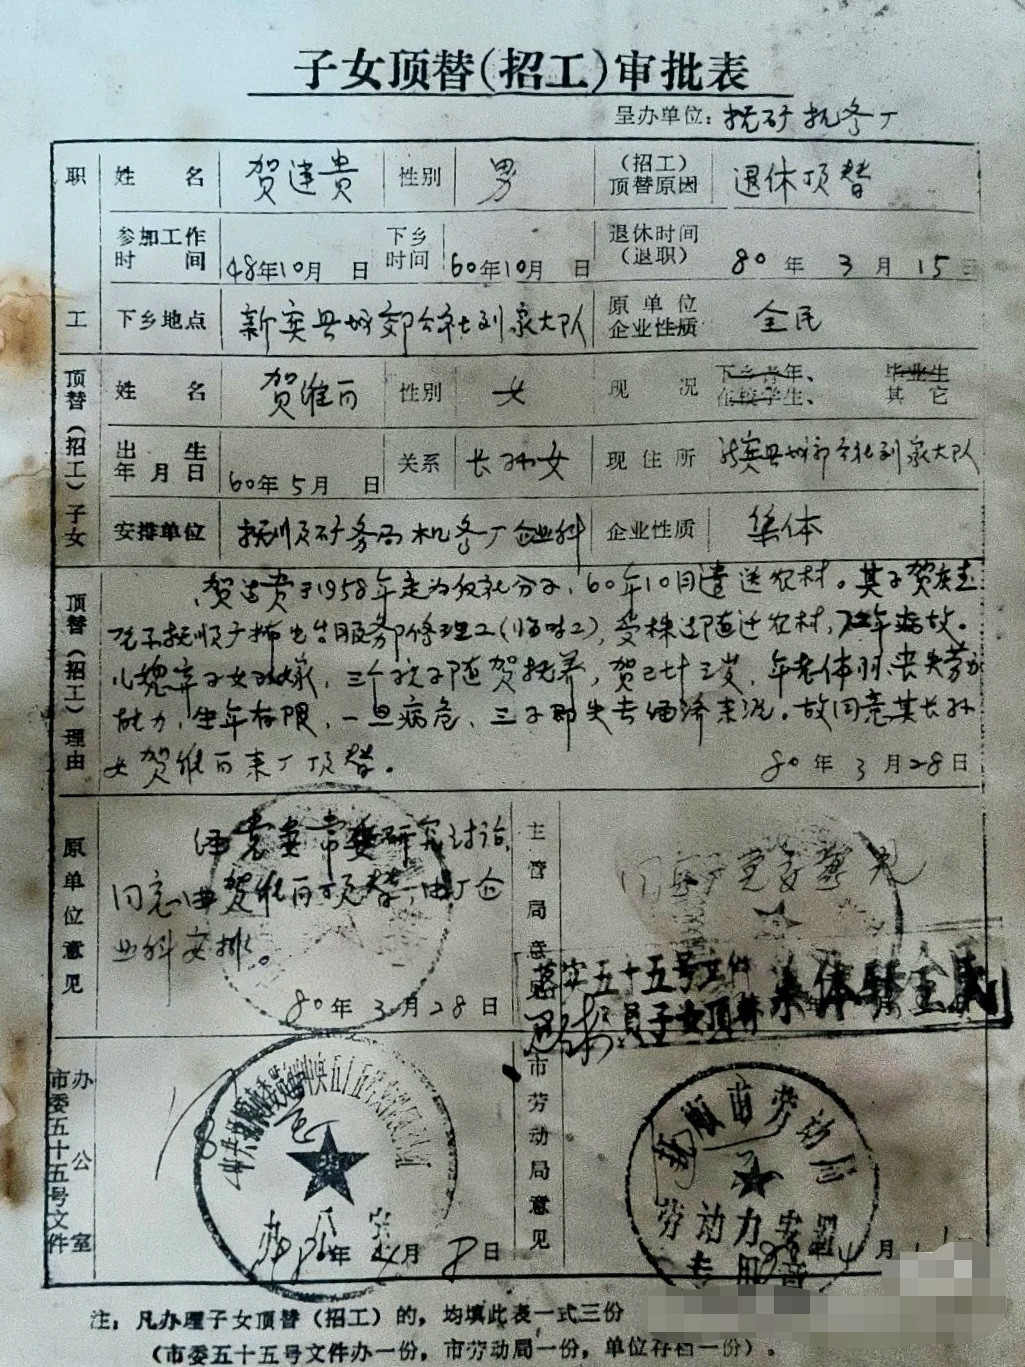 子女顶替(招工)审批表
呈办单位：抚矿机务厂
职工
姓名 贺连贵 性别 男 (招工)顶替原因 退休顶替
参加工作时间 48年10月 日 下乡时间 60年10月 日 退休时间(退职) 80年3月15日
下乡地点 新宾县城郊公社刘家大队 原单位企业性质 全民
顶替(招工)子女
姓名 贺维 性别 女 现况 下乡青年、毕业生 在校学生、其它
出生年月日 60年5月 日 关系 长孙女 现住所 新宾县城郊公社刘家大队
安排单位 抚顺矿务局机务厂企业科 企业性质 集体
顶替(招工)理由
贺连贵于1958年定为 分子，60年10月遣送农村。其子贺
抚顺 服务部修理工(临时工)，受株连随迁农村， 年病故。
儿媳弃子女改嫁，三个孩子随贺抚养，贺已七十三岁，年老体弱，丧失劳动
能力，生年有限，一旦病危，三子即失去经济来源。故同意其长孙
女贺维 来厂顶替。 80年3月28日
原单位意见
经党委常委研究讨论，
同意由贺维 顶替，由厂企
业科安排。
80年3月28日
主管局意见
同意 厂党委意见
落实五十五号文件
人员子女顶替 集体转全民
市委五十五号文件办公室
办公室
80年4月8日
市劳动局意见
抚顺市劳动局
劳动力
专用章
80年4月
注：凡办理子女顶替(招工)的，均填此表一式三份
(市委五十五号文件办一份，市劳动局一份，单位存档一份)。